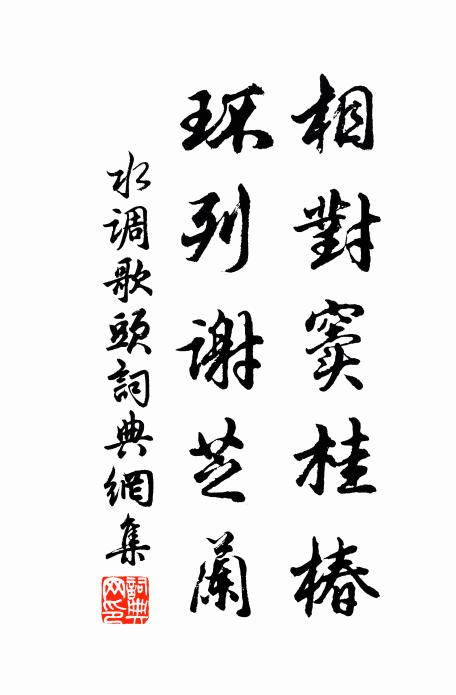 相對竇桂椿
环列谢芝蘭
水调歌頭詞典網集
詞典网印